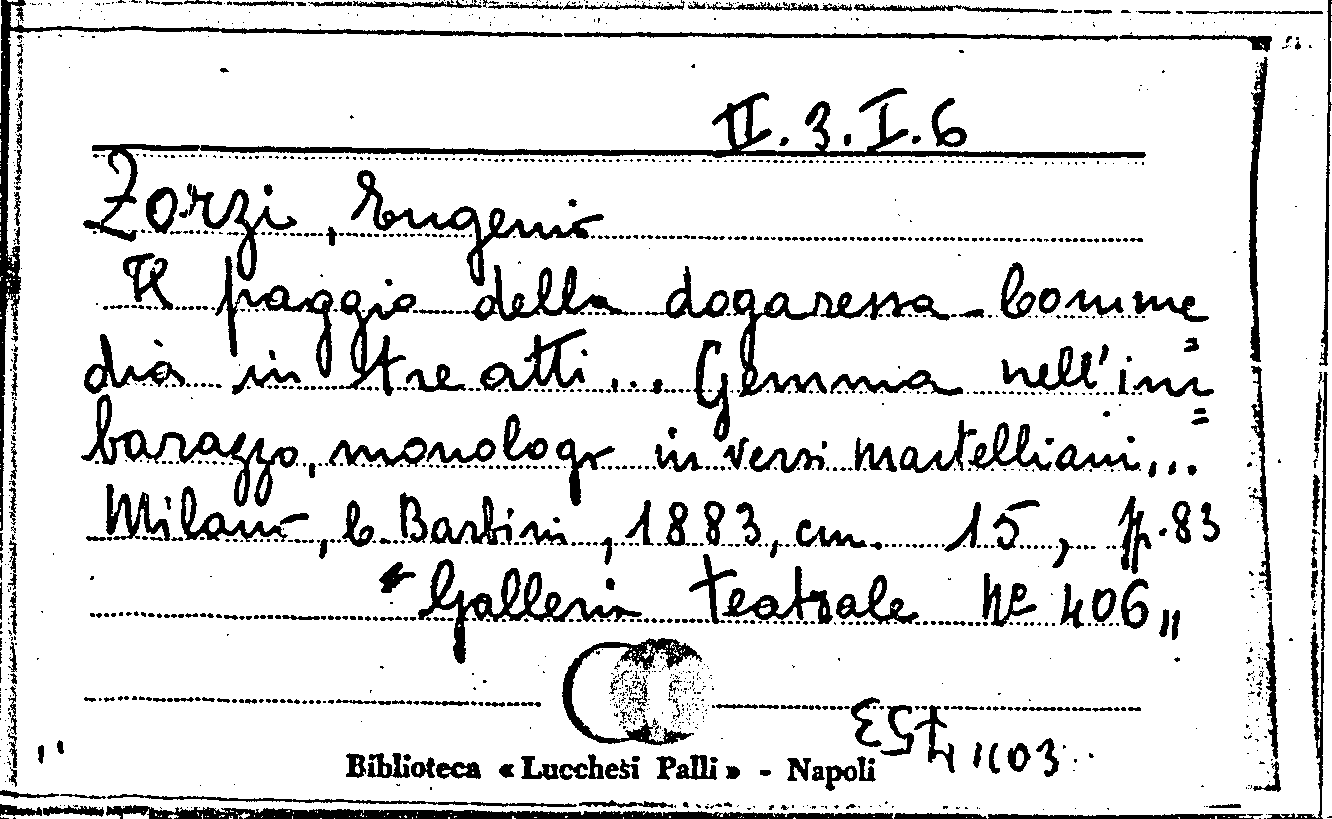 II.3.I.6
Zorzi, Eugenio
Il paggio della dogaressa - Comme
dia in tre atti... Gemma nell'im
barazzo, monologo in versi martelliani...
Milano, C. Barbini, 1883, cm. 15, p. 83
"Galleria teatrale Nº 406"
Biblioteca « Lucchesi Palli » - Napoli